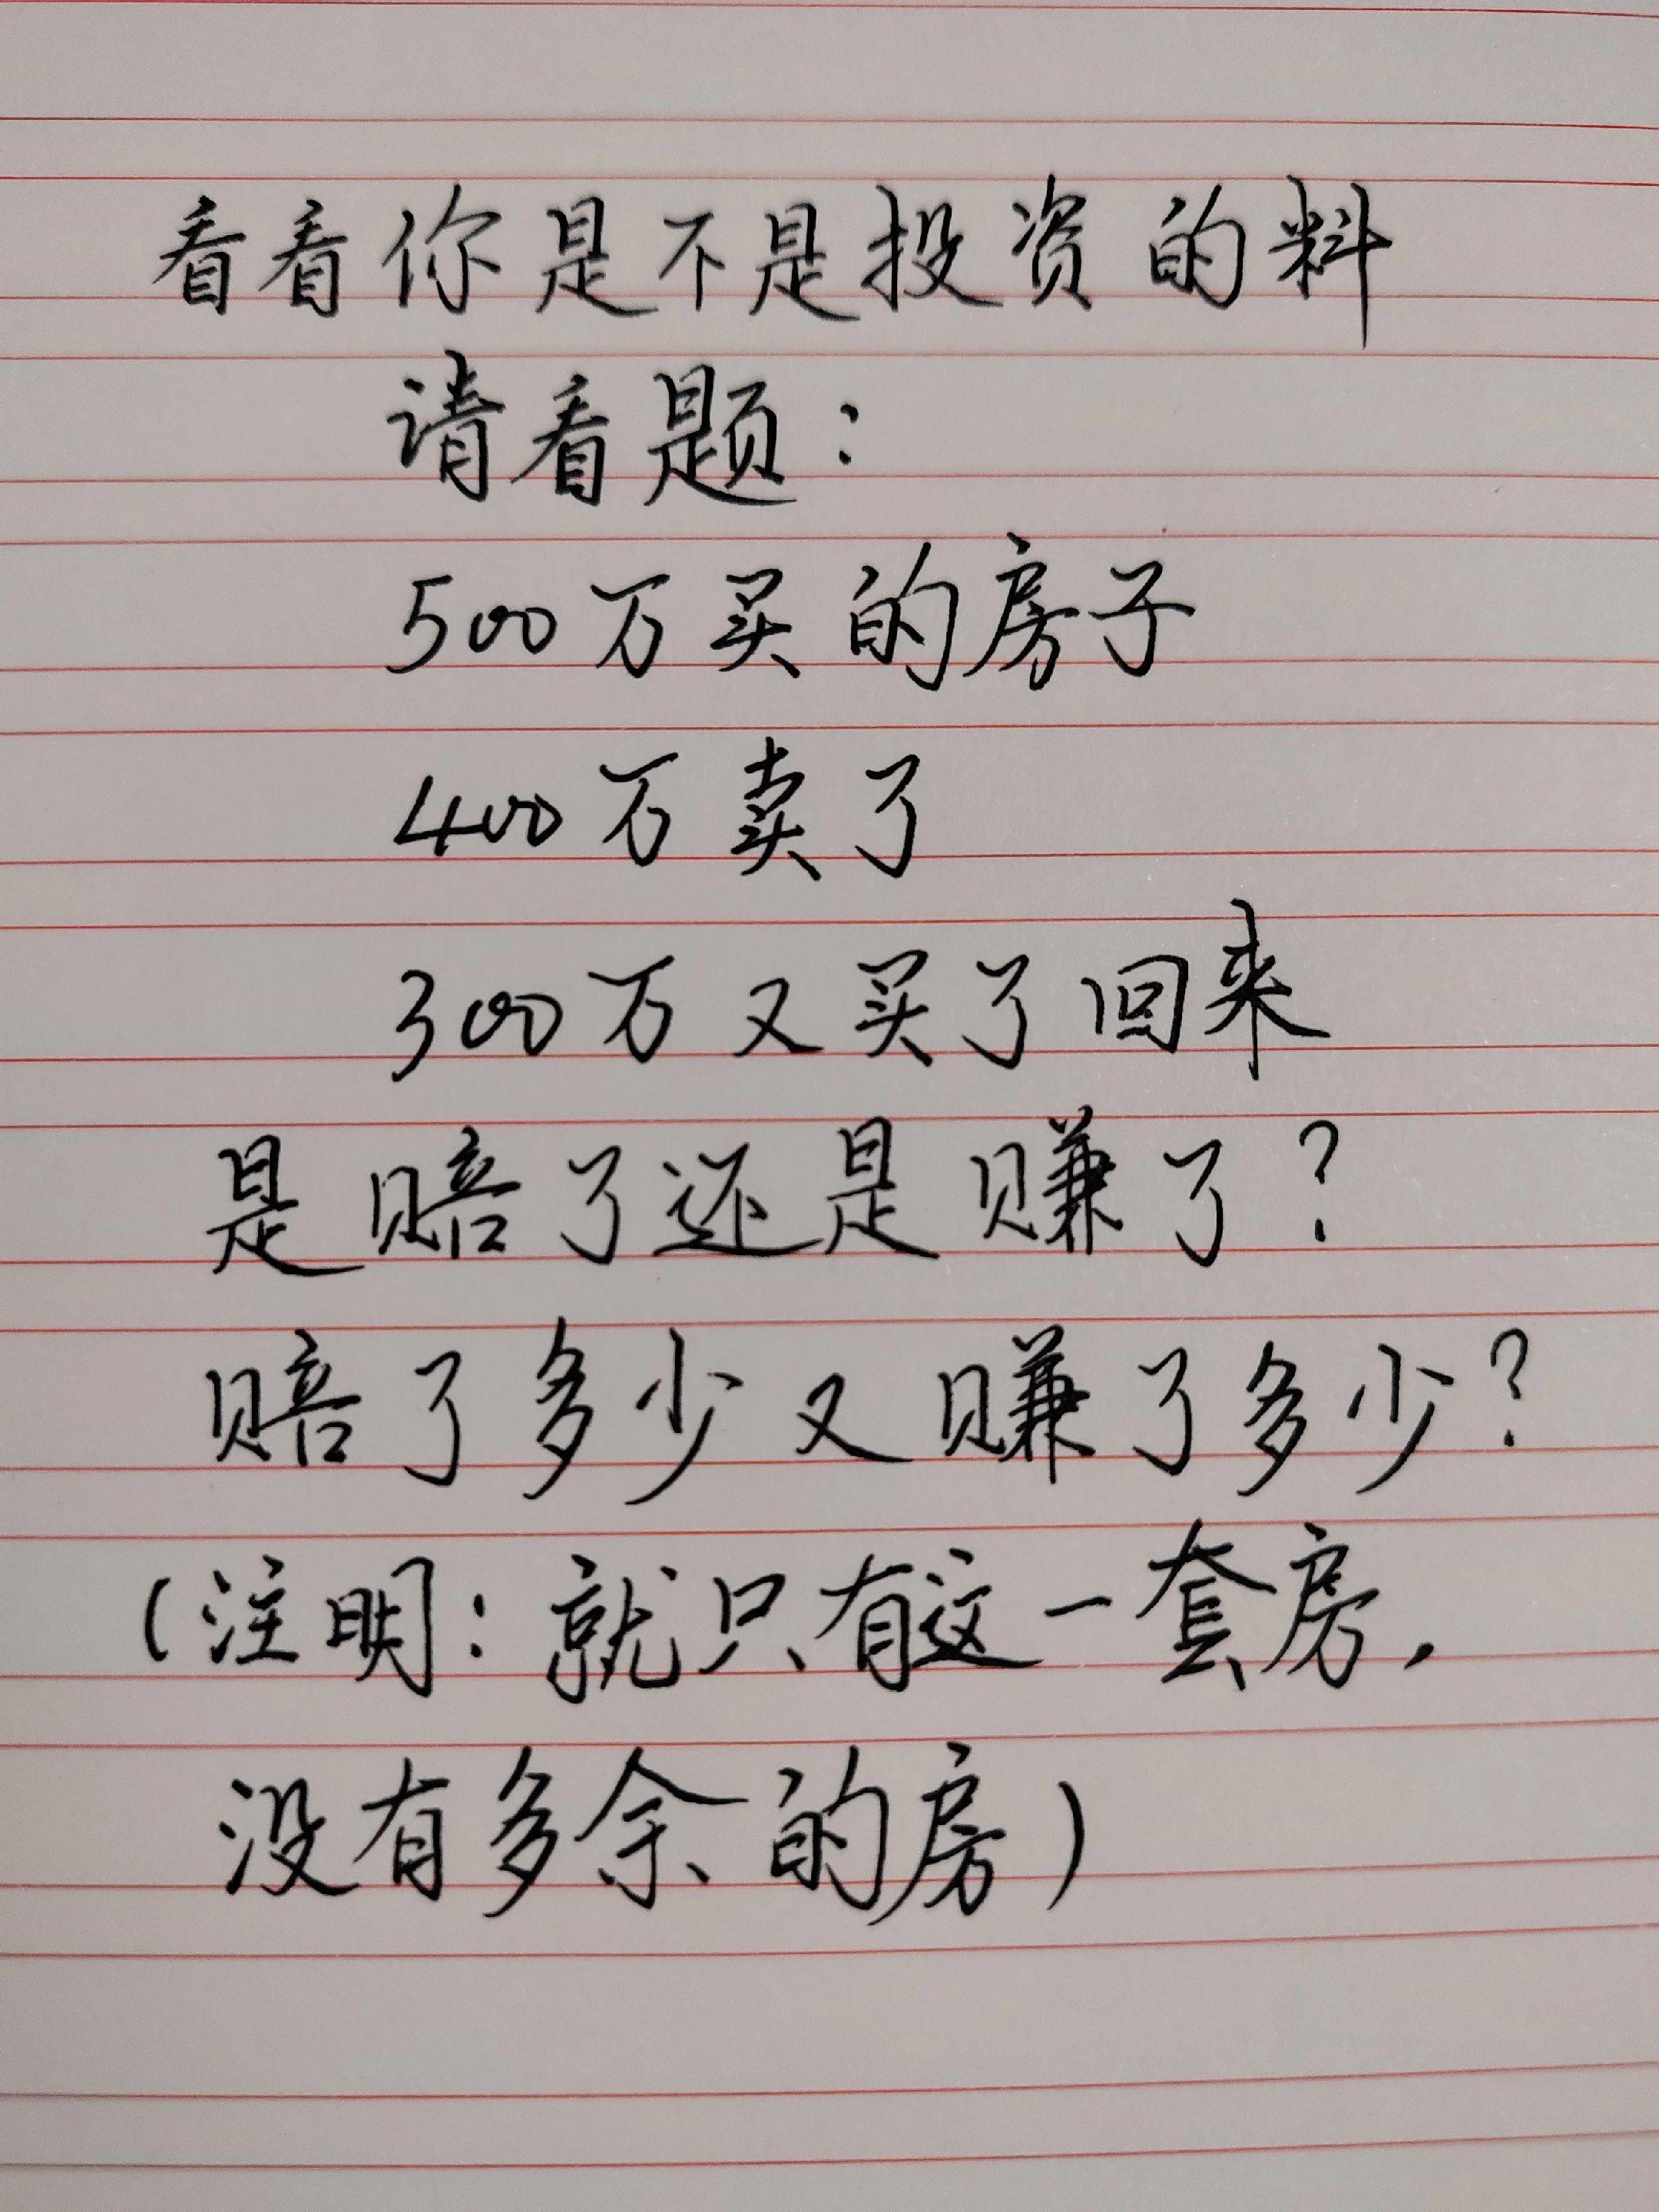 看看你是不是投资的料
请看题：
500万买的房子
400万卖了
300万又买了回来
是赔了还是赚了？
赔了多少又赚了多少？
（注明：就只有这一套房，
没有多余的房）